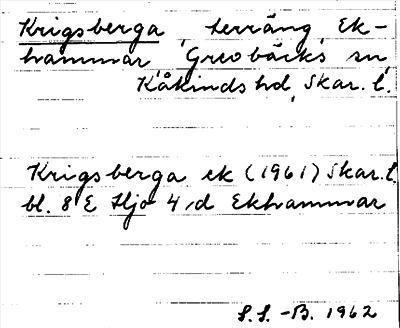 Krigsberga, terräng, Ek-
hammar, Grevbäcks sn,
Kåkinds hd, Skar. l.
Krigsberga ek (1961) Skar. l.
bl. 8 E Hjo 4, d Ekhammar
S.S. -B. 1962